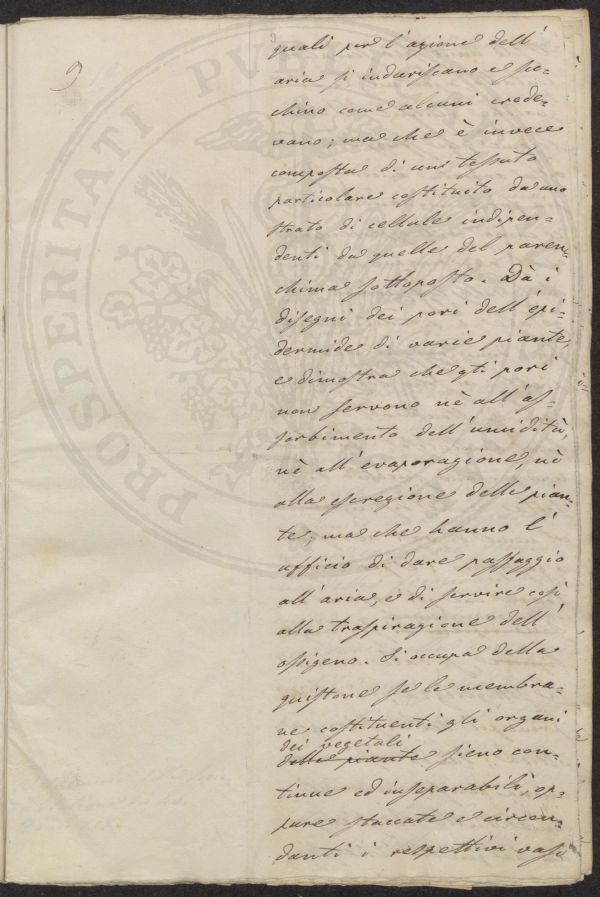 9
quali per l'azione dell'
aria si induriscano e sec=
chino come alcuni crede=
vano; ma che è invece
composta di un tessuto
particolare costituito da uno
strato di cellule indipen=
denti da quelle del paren=
chima sottoposto. Dà i
disegni dei pori dell'epi=
dermide di varie piante,
e dimostra che gli pori
non servono nè all'as=
sorbimento dell'umidità,
nè all'evaporazione, nè
alla escrezione delle pian=
te; ma che hanno l'
ufficio di dare passaggio
all'aria, e di servire così
alla traspirazione dell'
ossigeno. Si occupa della
quistone se le membra=
ne costituenti gli organi
dei vegetali
delle piante sieno con=
tinue ed inseparabili, op=
pure staccate e circon=
danti i respettivi vasi
PROSPERITATI PUBL